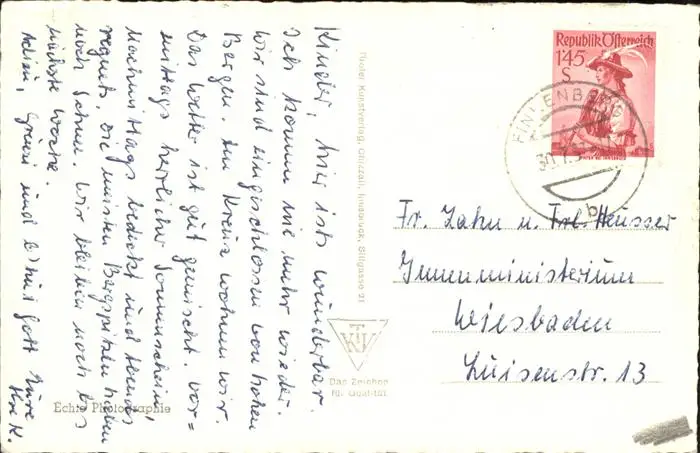 Kinder, hier ists wunderbar.
Ich komme nie mehr wieder.
Wir sind eingeschlossen von hohen
Bergen. Im Kreuz wohnen wir.
Das Wetter ist gut gemischt. Vor=
mittags herrlicher Sonnenschein,
Nachmittags bedeckt und abends
regnets, die meisten Bergspitzen haben
noch Schnee. Wir bleiben noch bis
nächste Woche.
Adieu, Grüss und Gott Eure
Ihre K.
Echte Photographie
Tiroler Kunstverlag, Chizzali, Innsbruck, Sillgasse 21
TKV
Das Zeichen
für Qualität
Republik Österreich
1'45
S
30.7.5
b
Fr. Zahn u. Frl. Heusser
Innenministerium
Wiesbaden
Luisenstr. 13